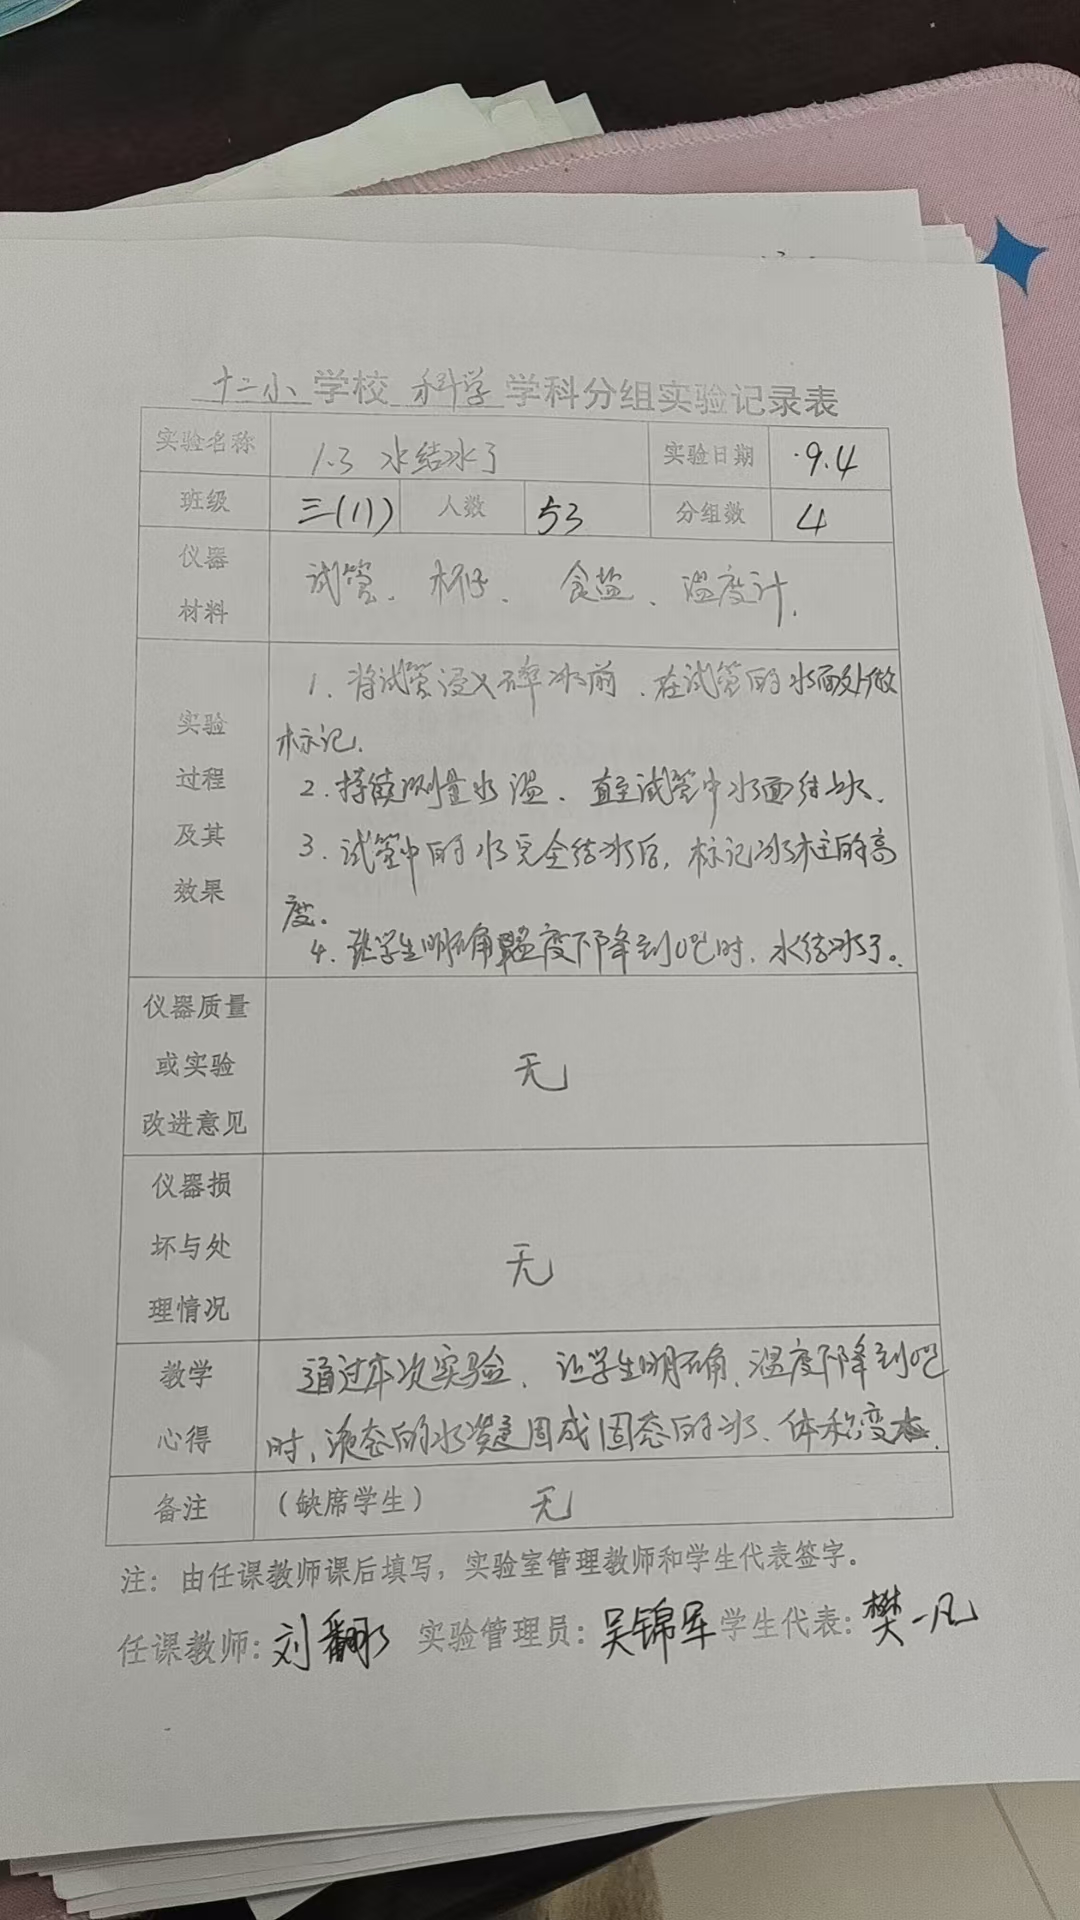 十二小 学校 科学 学科分组实验记录表
实验名称 1.3 水结冰了 实验日期 .9.4
班级 三(11) 人数 53 分组数 4
仪器
材料
试管、杯子、食盐、温度计.
实验
过程
及其
效果
1. 将试管浸入碎冰前、在试管的水面处做
标记.
2. 持续测量水温、直至试管中水面结冰.
3. 试管中的水完全结冰后, 标记冰柱的高
度。
4. 让学生明确温度下降到0℃时、水结冰了。
仪器质量
或实验
改进意见
无
仪器损
坏与处
理情况
无
教学
心得
通过本次实验、让学生明确、温度下降到0℃
时、液态的水凝固成固态的冰、体积变大.
备注 (缺席学生) 无
注: 由任课教师课后填写, 实验室管理教师和学生代表签字。
任课教师: 刘 实验管理员: 吴锦军 学生代表: 樊一凡